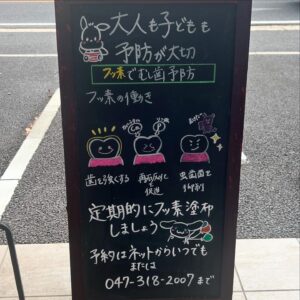 大人も子どもも
予防が大切
フッ素でむし歯予防
フッ素の働き
歯を強くする
再石灰化を
促進
虫歯菌を
抑制
定期的にフッ素塗布
しましょう
予約はネットからいつでも
または
047-318-2007まで